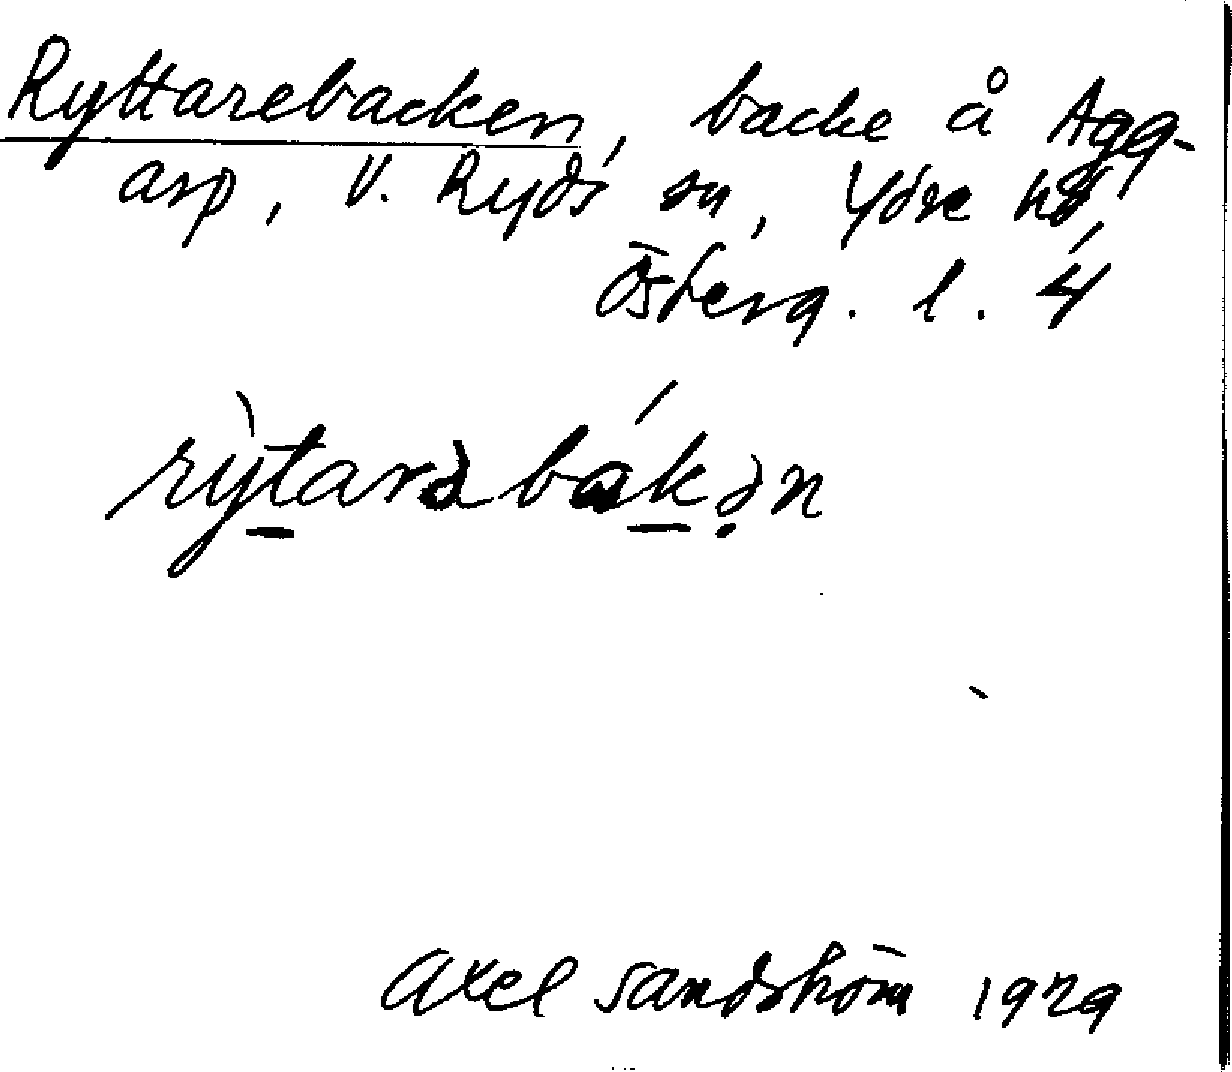 Ryttarebacken, backe å Agg-
arp, V. Ryds sn, Ydre hd,
Österg. l. 4
rỳtarəbákən
Axel Sandström 1929